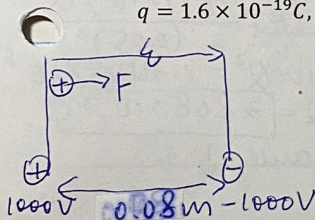 q = 1.6 × 10⁻¹⁹C,
+ F
+ -
1000V 0.08m -1000V